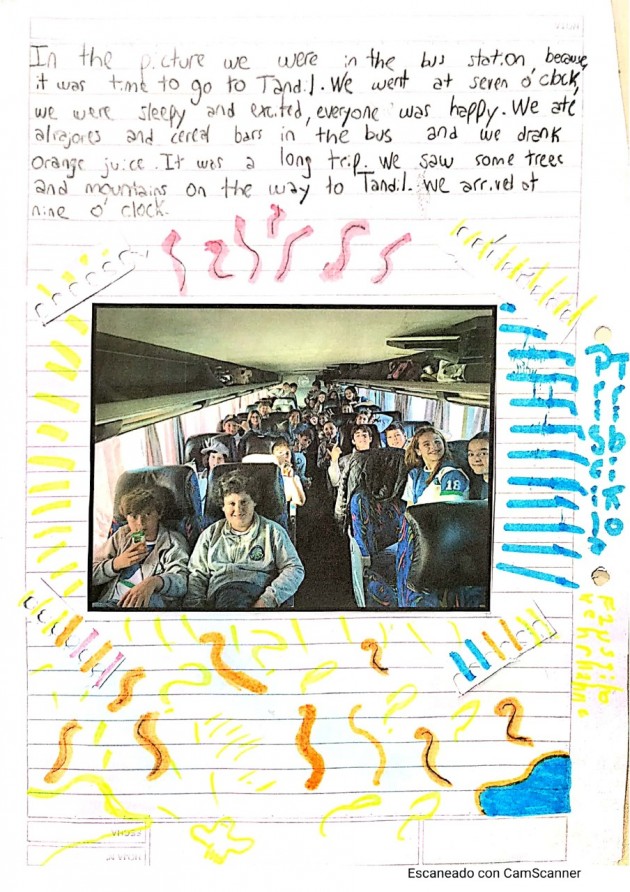 In the picture we were in the bus station, because
it was time to go to Tandil. We went at seven o'clock,
we were sleepy and excited, everyone was happy. We ate
alfajores and cereal bars in the bus and we drank
orange juice. It was a long trip. We saw some trees
and mountains on the way to Tandil. We arrived at
nine o'clock.
18
FECHA
FECHA
Escaneado con CamScanner